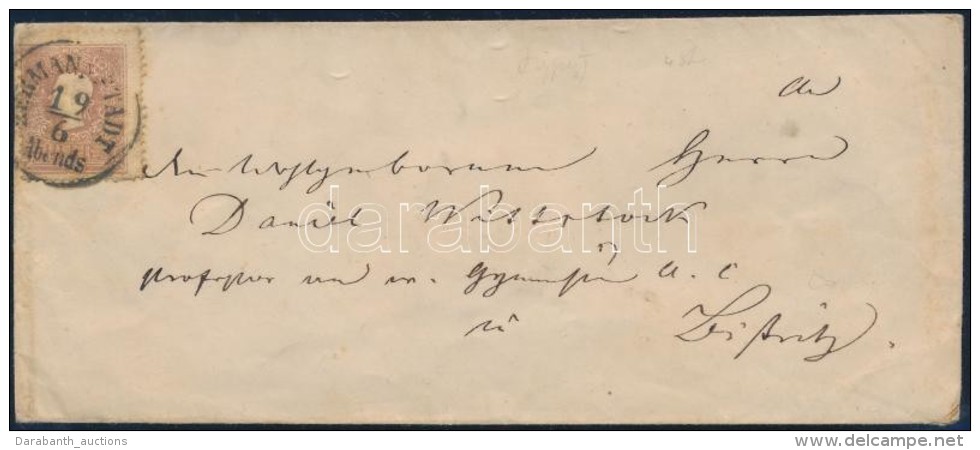 HERMANNSTADT
19
6
Abends
An
Wohlgeborenen Herrn
Daniel Wittstock
Professor am ev. Gymnasium A. C.
in
Bistritz.
darabanth
Darabanth_auctions
www.delcampe.net